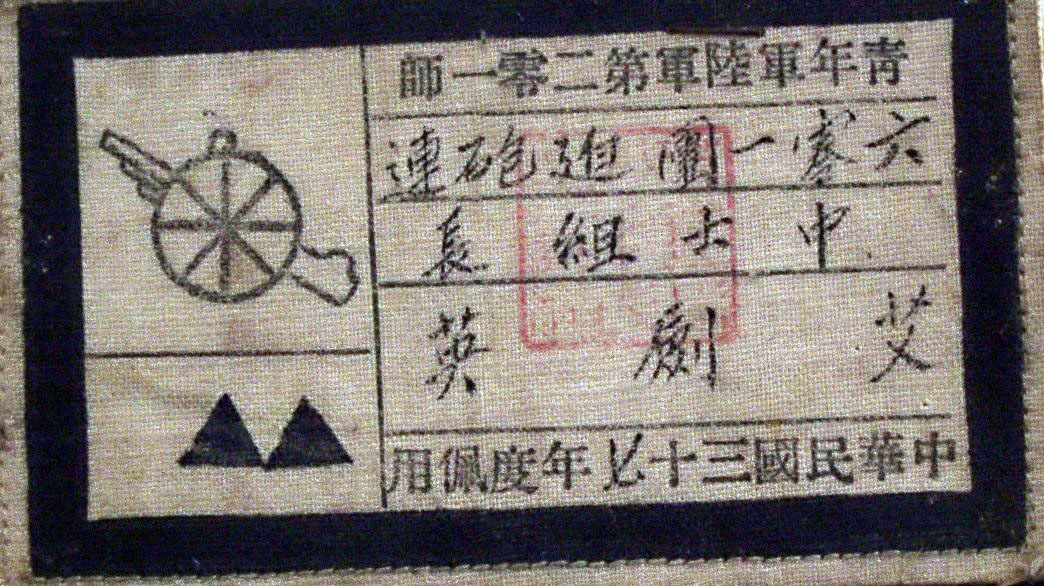 青年軍陸軍第二零一師
六零一團迫砲連
中士組長
艾 英
中華民國三十七年度佩用